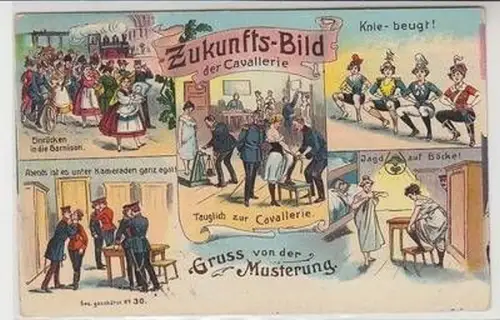 Zukunfts-Bild
der Cavallerie
Knie-beugt!
Einrücken
in die Garnison.
Tauglich zur Cavallerie.
Jagd auf Böcke!
Abends ist es unter Kameraden ganz egal!
Gruss von der
Musterung.
Ges. geschützt Nº 30.